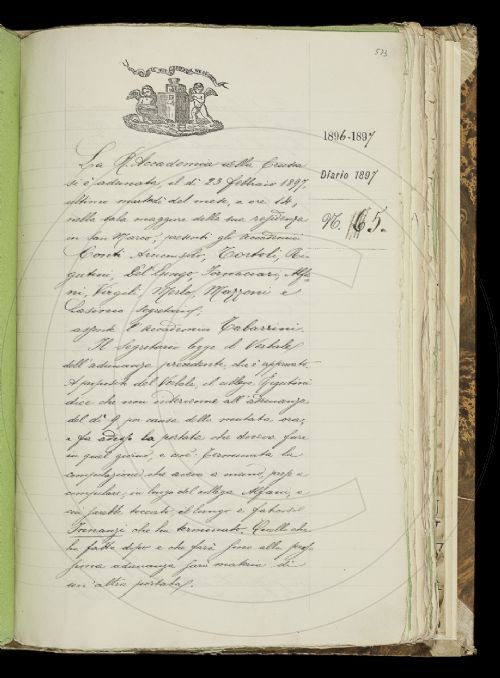 573
1896-1897
Diario 1897
N. 65.
La R. Accademia della Crusca
si è adunata, il dì 23 febbraio 1897,
ultimo martedì del mese, a ore 14,
nella sala maggiore della sua residenza
in San Marco; presenti gli Accademici
Conti Arciconsolo, Tortoli, Ri-
gutini, Del Lungo, Tornaciari, Alfa-
ni, Virgili, Merlo, Mazzoni e
Casorati Segretario;
assente l'accademico Tabarrini.
Il Segretario legge il Verbale
dell'adunanza precedente, che è approvato.
A proposito del Verbale, il collega Rigutini
dice che non intervenne all'adunanza
del dì 9 per causa della mutata ora;
e fa adesso la portata che doveva fare
in quel giorno, e cioè: Terminata la
compilazione, che aveva a mano, prese a
compilare, in luogo del collega Alfani, e
con
Innanzi che ha terminato. Quello che
ha fatto dipoi e che farà fino alla pros-
sima adunanza sarà materia di
un'altra portata.